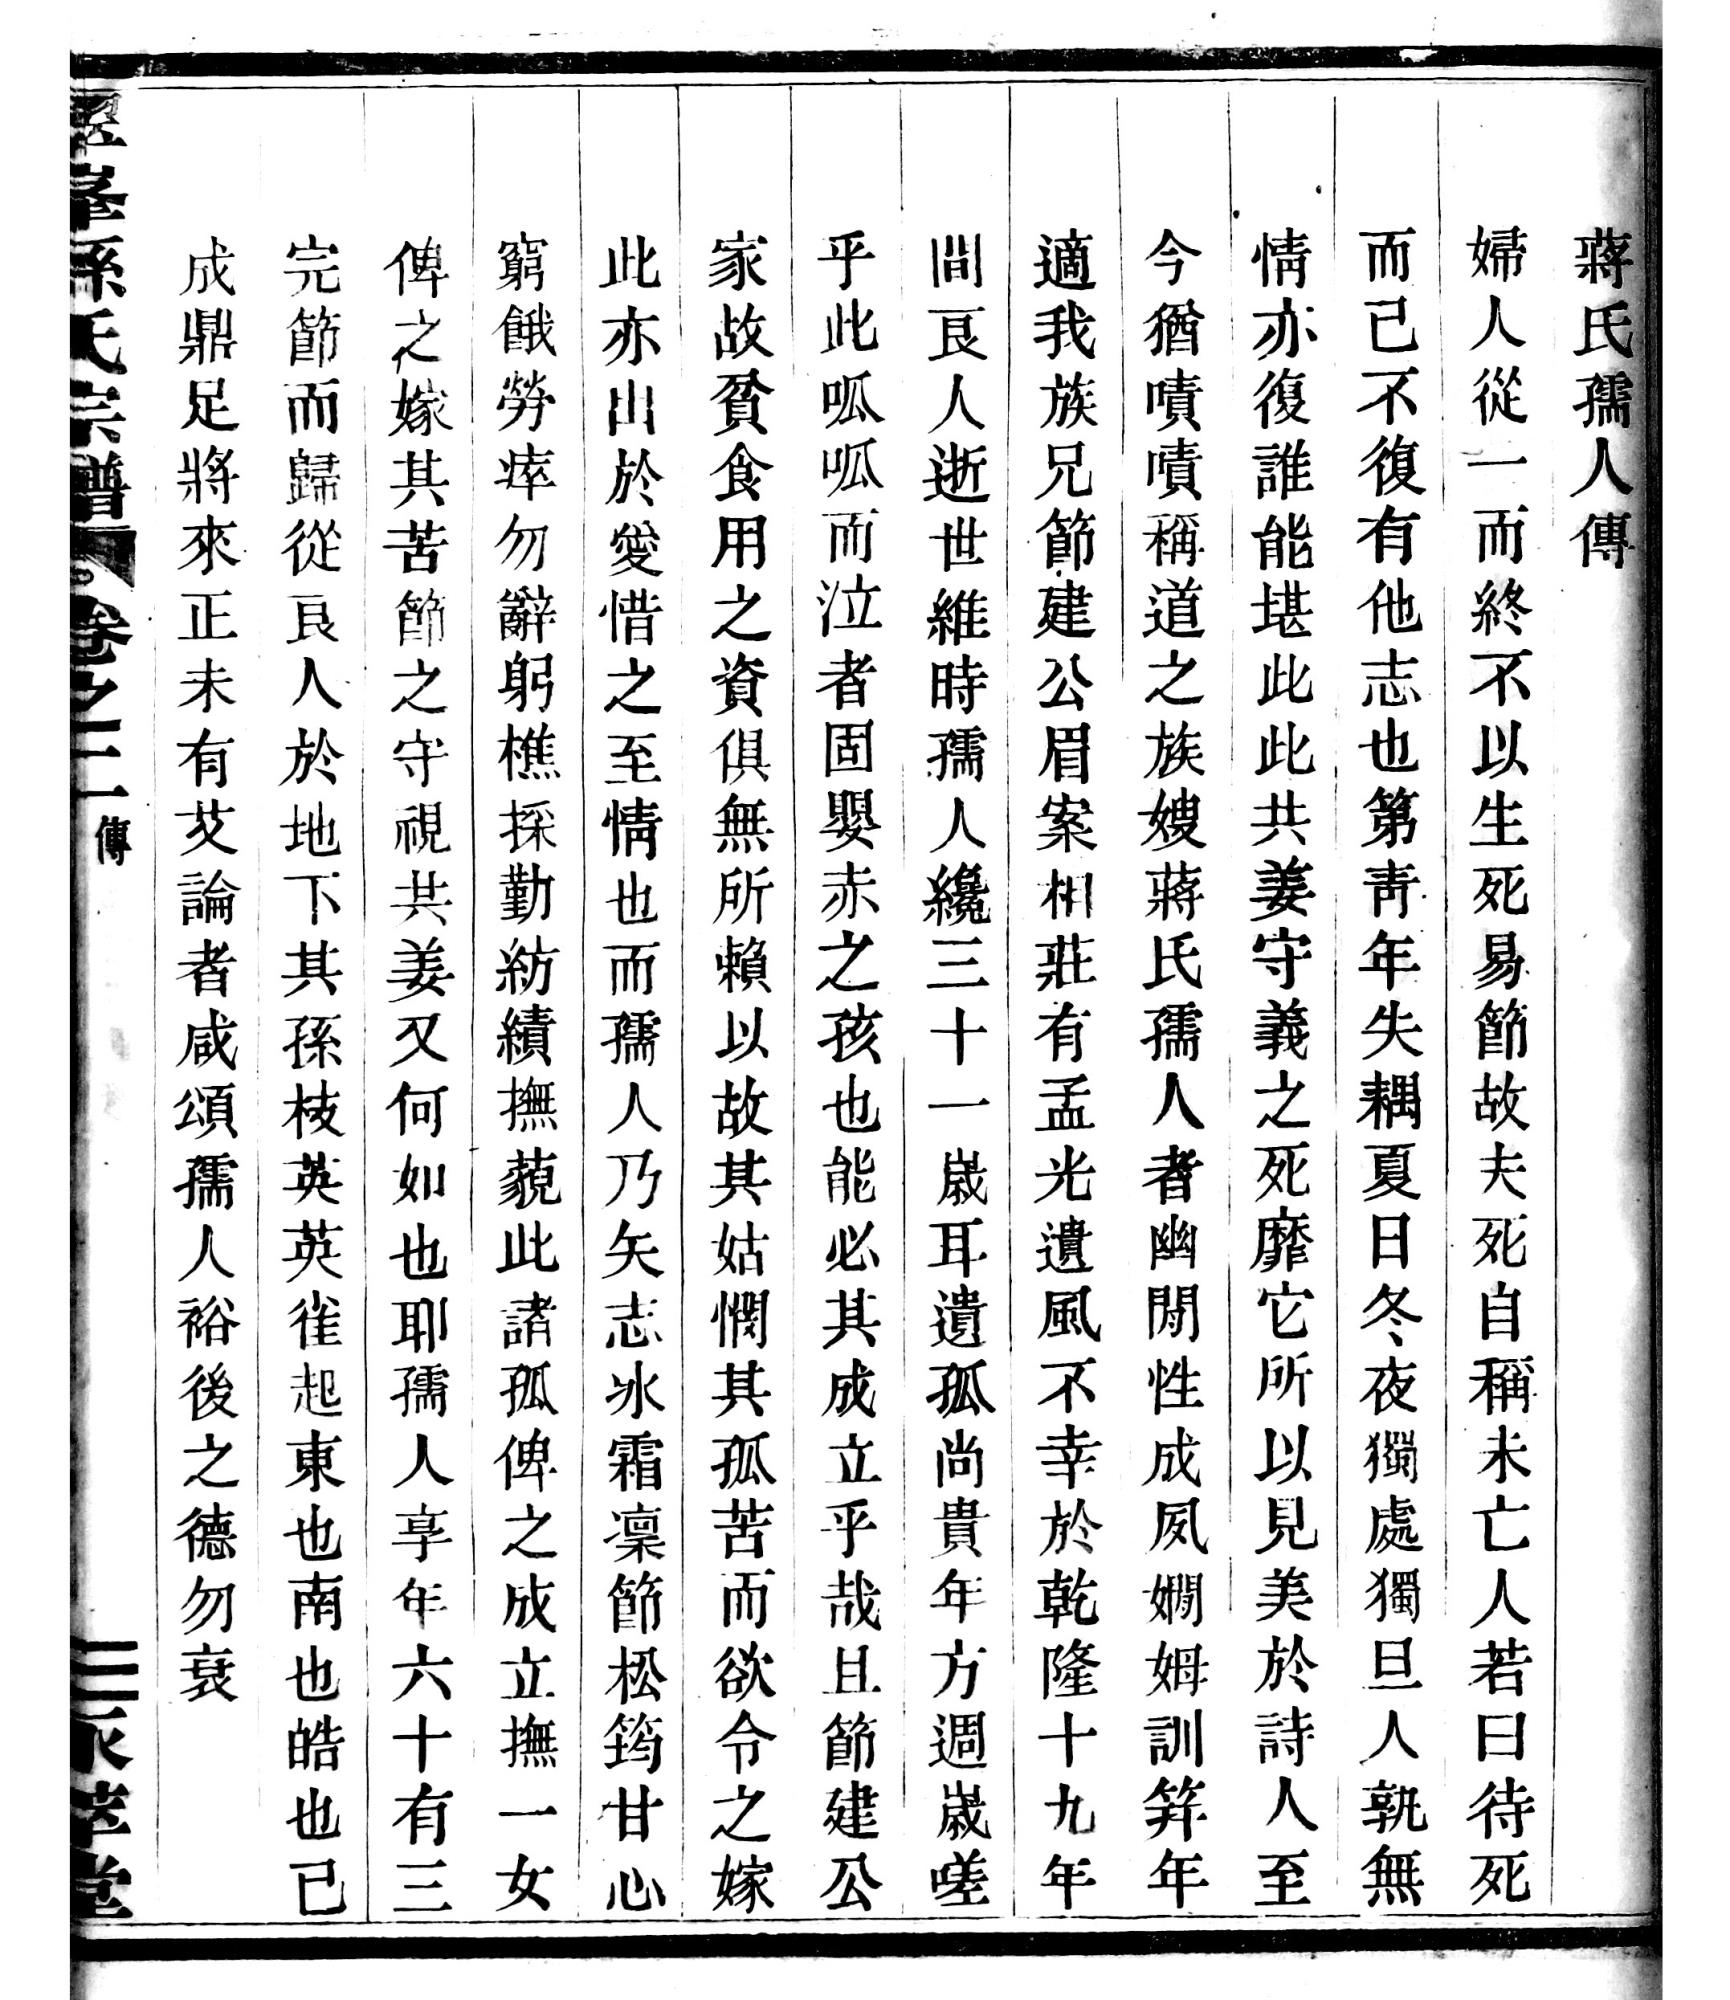 蔣氏孺人傳
婦人從一而終不以生死易節故夫死自稱未亡人若曰待死
而已不復有他志也第靑年失耦夏日冬夜獨處獨旦人孰無
情亦復誰能堪此此共姜守義之死靡它所以見美於詩人至
今猶嘖嘖稱道之族嫂蔣氏孺人者幽閒性成夙嫺姆訓笄年
適我族兄節建公眉案相莊有孟光遺風不幸於乾隆十九年
間良人逝世維時孺人纔三十一歲耳遺孤尚貴年方週歲嗟
乎此呱呱而泣者固嬰赤之孩也能必其成立乎哉且節建公
家故貧食用之資俱無所賴以故其姑憫其孤苦而欲令之嫁
此亦出於愛惜之至情也而孺人乃矢志冰霜凜節松筠甘心
窮餓勞瘁勿辭躬樵採勤紡績撫藐此諸孤俾之成立撫一女
俾之嫁其苦節之守視共姜又何如也耶孺人享年六十有三
完節而歸從良人於地下其孫枝英英雀起東也南也皓也已
成鼎足將來正未有艾論者咸頌孺人裕後之德勿衰
孫氏宗譜
卷之二
傳
萃堂